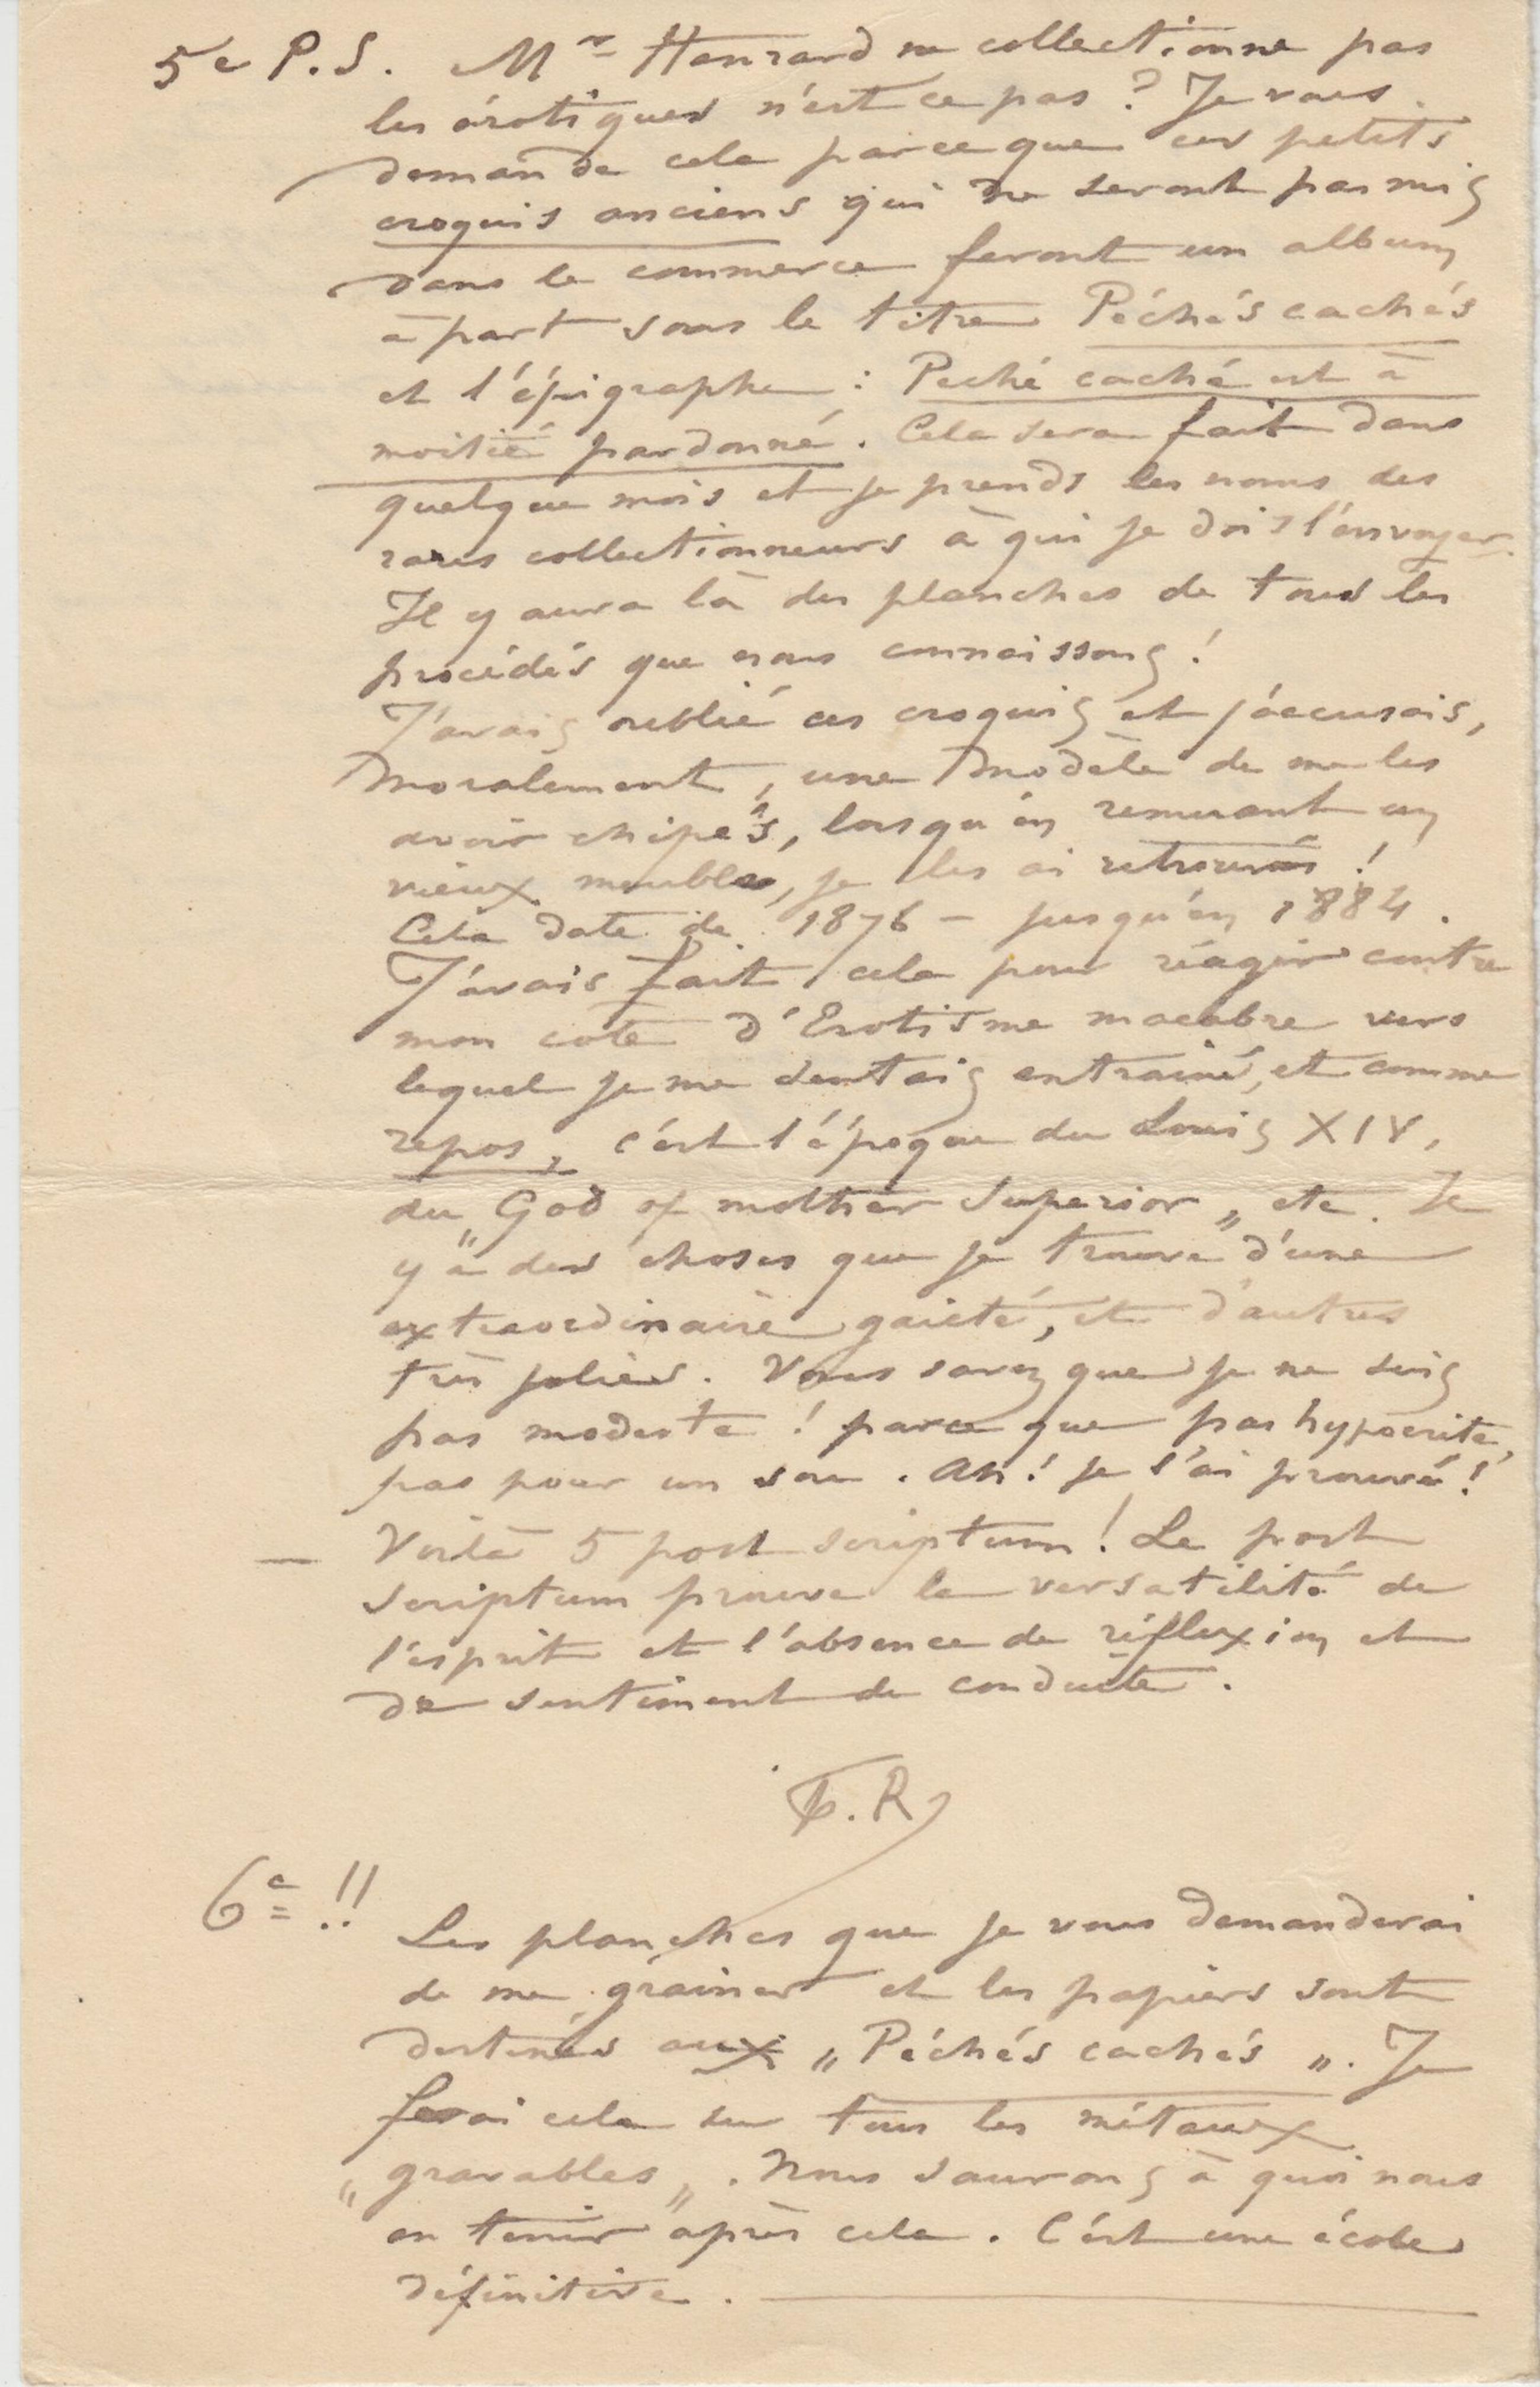 5e P.S. Mr Hanrard ne collectionne pas
les érotiques n'est ce pas ? Je vous
demande cela parceque ces petits
croquis anciens qui ne seront pas mis
dans le commerce feront un album
à part sous le titre Péchés cachés
et l'épigraphe : Peché caché est à
moitié pardonné. Cela sera fait dans
quelque mois et je prends les noms des
rares collectionneurs à qui je dois l'envoyer.
Il y aura là des planches de tous les
procédés que nous connaissons !
J'avais oublié ces croquis et j'accusais,
moralement, une modèle de me les
avoir chipés, lorsqu'en remuant un
vieux meuble, je les ai retrouvés !
Cela date de 1876 – jusqu'en 1884.
J'avais fait cela pour réagir contre
mon coté d'Erotisme macabre vers
lequel je me sentais entrainé, et comme
repos, c'est l'époque du Louis XIV,
du „God of mother Superior„ etc. Il
y a des choses que je trouve d'une
extraordinaire gaieté, et d'autres
très jolies. Vous savez que je ne suis
pas modeste ! parce que pas hypocrite,
pas pour un sou. Ah ! je l'ai prouvé !
— Voilà 5 post scriptum ! Le post
scriptum prouve la versatilité de
l'esprit et l'absence de réflexion et
de sentiment de conduite.
F.R
6e !!
Les planches que je vous demanderai
de me grainer et les papiers sont
destinés aux „Péchés cachés„. Je
ferai cela sur tous les métaux
„gravables„. Nous saurons à quoi nous
en tenir après cela. C'est une école
définitive.